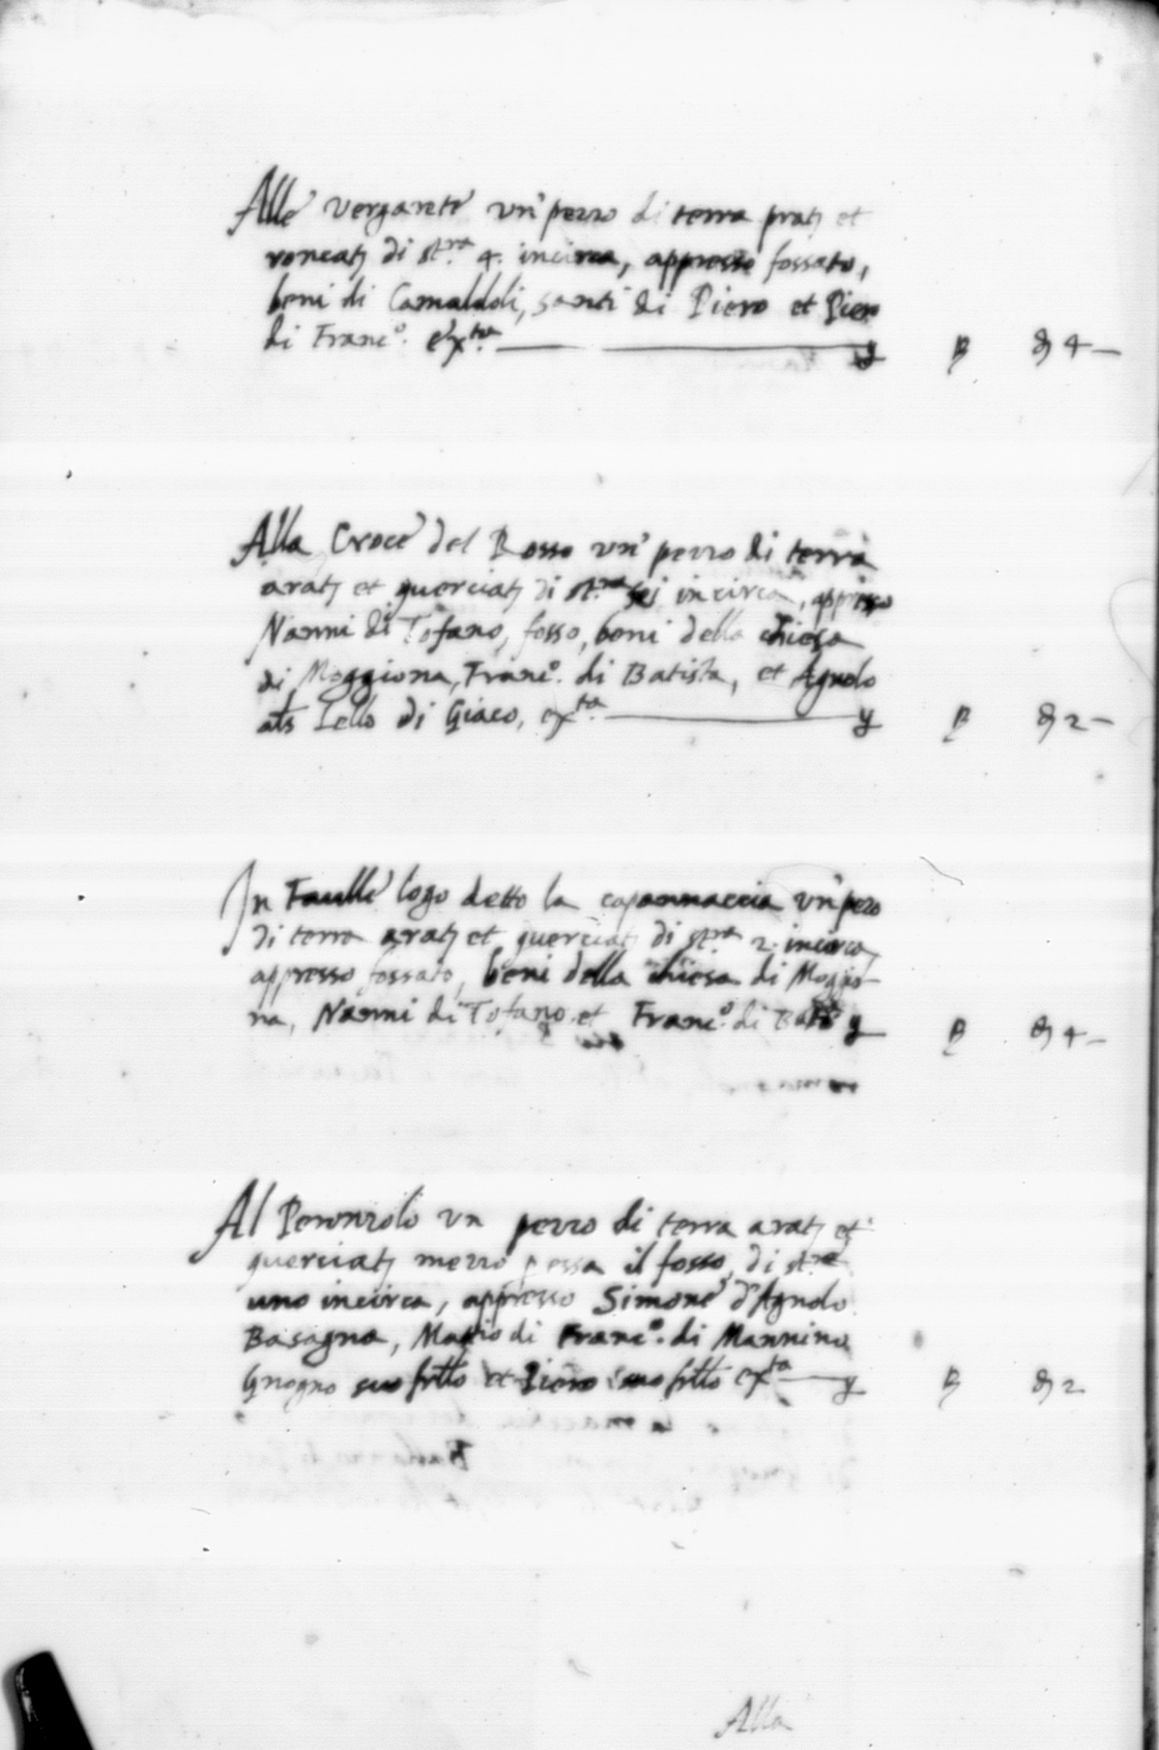 Alle vergarete un' pezzo di terra prat; et
roncat; di st.ra 4. incirca, appresso fossato,
beni di Camaldoli, santi di Piero et Piero
di Franc.o ext.a
Alla Croce del Rosso un' pezzo di terra
arat; et querciat; di st.ra sej incirca, appresso
Nanni di Tofano, fosso, beni della chiesa
di Moggiona, Franc.o di Batista, et Agnolo
als Lello di Giaco, ext.a
In Faulle logo detto la capannaccia un' pezo
di terra arat; et querciat; di st.ra 2. incirca,
appresso fossato, beni della chiesa di Moggio-
na, Nanni di Tofano et Franc.o di
Al un pezzo di terra arat; et
querciat; mezzo passa il fosso, di st.ro
uno incirca, appresso Simone d'Agnolo
Basagna, di Franc.o di Mannino
Gnogno suo frtlo et Piero suo frtlo ext.a
Alla